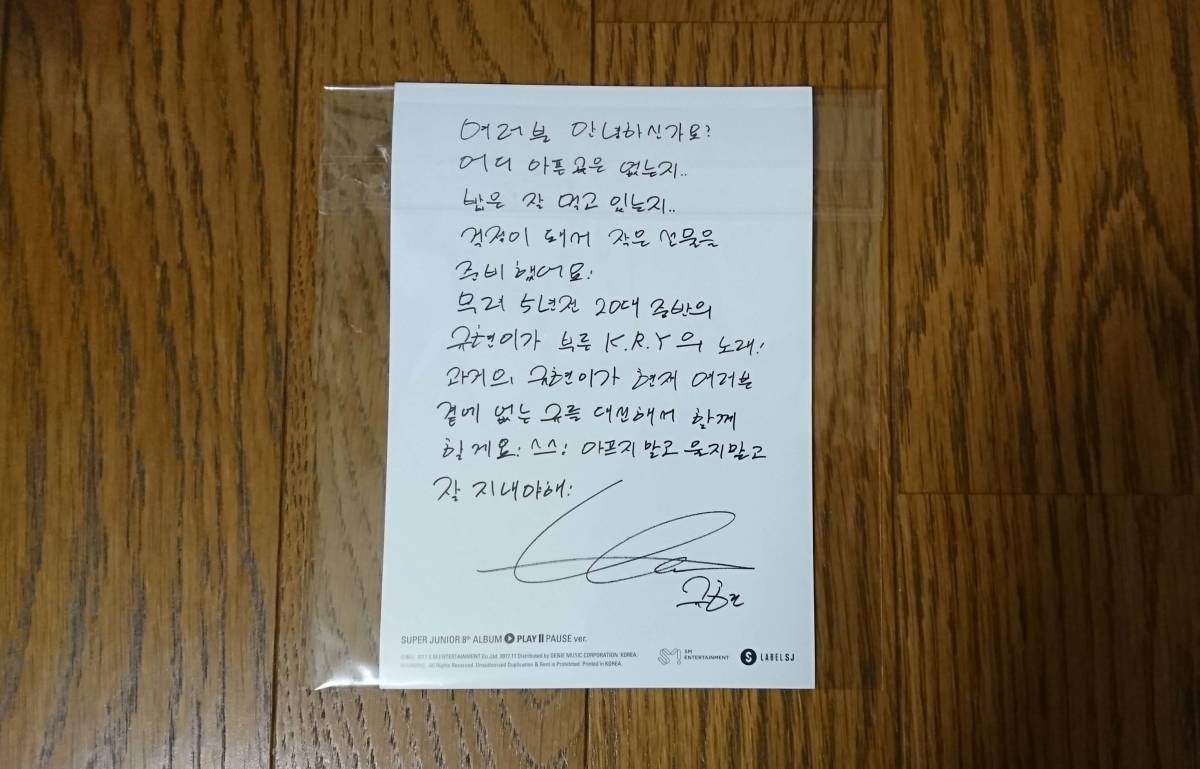 여러분 안녕하신가요?
어디 아픈 곳은 없는지..
밥은 잘 먹고 있는지..
걱정이 돼서 작은 선물을
준비했어요!
무려 5년전 20대 중반의
규현이가 부른 K.R.Y의 노래!
과거의 규현이가 현재 여러분
곁에 없는 규를 대신해서 함께
할게요! 스스! 아프지말고 울지말고
잘 지내야해!
규현
SUPER JUNIOR 8th ALBUM PLAY PAUSE ver.
2017 S.M.ENTERTAINMENT Co.,Ltd. 2017.11 Distributed by GENIE MUSIC CORPORATION. KOREA.
All Rights Reserved. Unauthorized Duplication & Rent is Prohibited. Printed in KOREA.
SM ENTERTAINMENT
S LABEL SJ